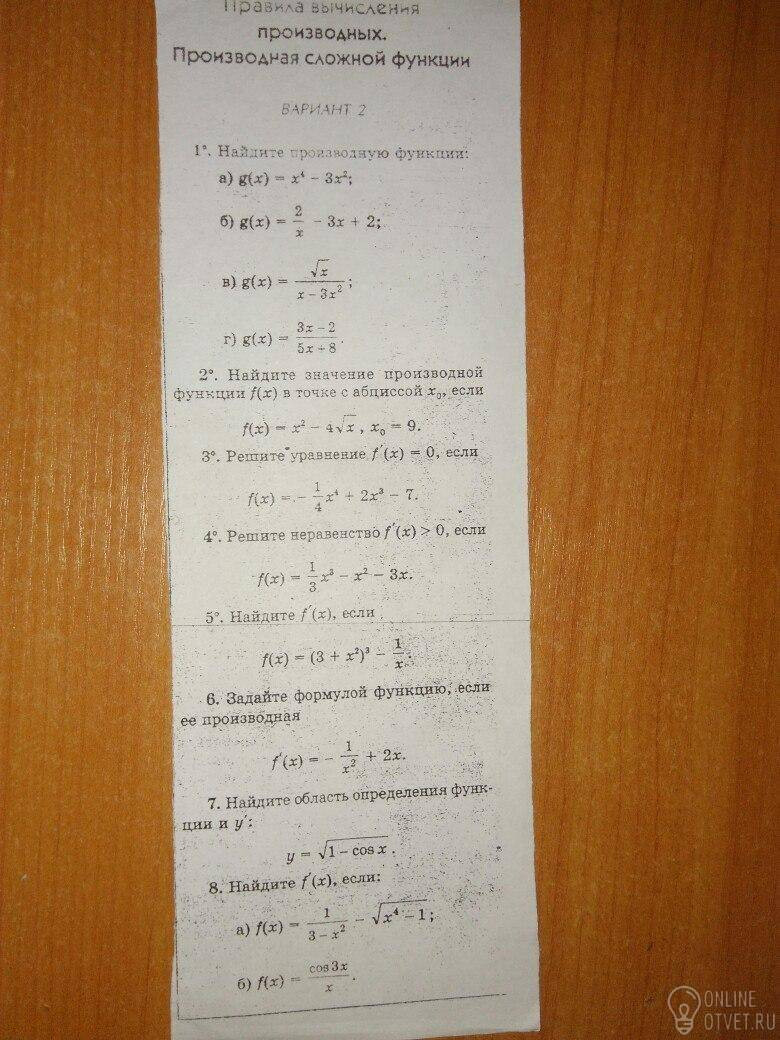 Правила вычисления
производных.
Производная сложной функции
ВАРИАНТ 2
1°. Найдите производную функции:
а) g(x) = x⁴ − 3x²;
б) g(x) = 2/x − 3x + 2;
в) g(x) = √x/(x − 3x²);
г) g(x) = (3x − 2)/(5x + 8).
2°. Найдите значение производной
функции f(x) в точке с абциссой x₀, если
f(x) = x² − 4√x, x₀ = 9.
3°. Решите уравнение f′(x) = 0, если
f(x) = − 1/4 x⁴ + 2x³ − 7.
4°. Решите неравенство f′(x) > 0, если
f(x) = 1/3 x³ − x² − 3x.
5°. Найдите f′(x), если
f(x) = (3 + x²)³ − 1/x.
6. Задайте формулой функцию, если
ее производная
f′(x) = − 1/x² + 2x.
7. Найдите область определения функ-
ции и y′:
y = √(1 − cos x).
8. Найдите f′(x), если:
а) f(x) = 1/(3 − x²) − √(x⁴ − 1);
б) f(x) = cos 3x/x.
ONLINE
OTVET.RU